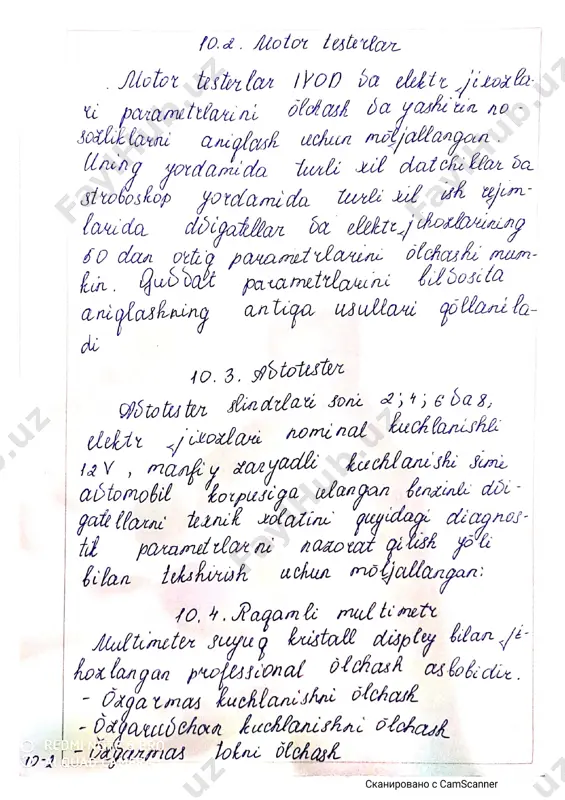 10.2. Motor testerlar
Motor testerlar IYOD va elektr jixozla-
ri parametrlarini ölchash va yashirin no-
sozliklarni aniqlash uchun möljallangan.
Uning yordamida turli xil datchiklar va
stroboskop yordamida turli xil ish rejim-
larida dvigatellar va elektr jihozlarining
60 dan ortiq parametrlarini ölchashi mum-
kin. Quvvat parametrlarini bilvosita
aniqlashning antiqa usullari qöllanila-
di
10.3. Avtotester
Avtotester slindrlari soni 2; 4; 6 va 8,
elektr jixozlari nominal kuchlanishli
12V, manfiy zaryadli kuchlanishi simi
avtomobil korpusiga ulangan benzinli dvi-
gatellarni texnik xolatini quyidagi diagnos-
tik parametrlarni nazorat qilish yöli
bilan tekshirish uchun möljallangan:
10.4. Raqamli multimetr
Multimeter suyuq kristall displey bilan ji-
hozlangan professional ölchash asbobidir.
- Özgarmas kuchlanishni ölchash
- Özgaruvchan kuchlanishni ölchash
- Özgarmas tokni ölchash
10-2
Сканировано с CamScanner
FayHub.uz